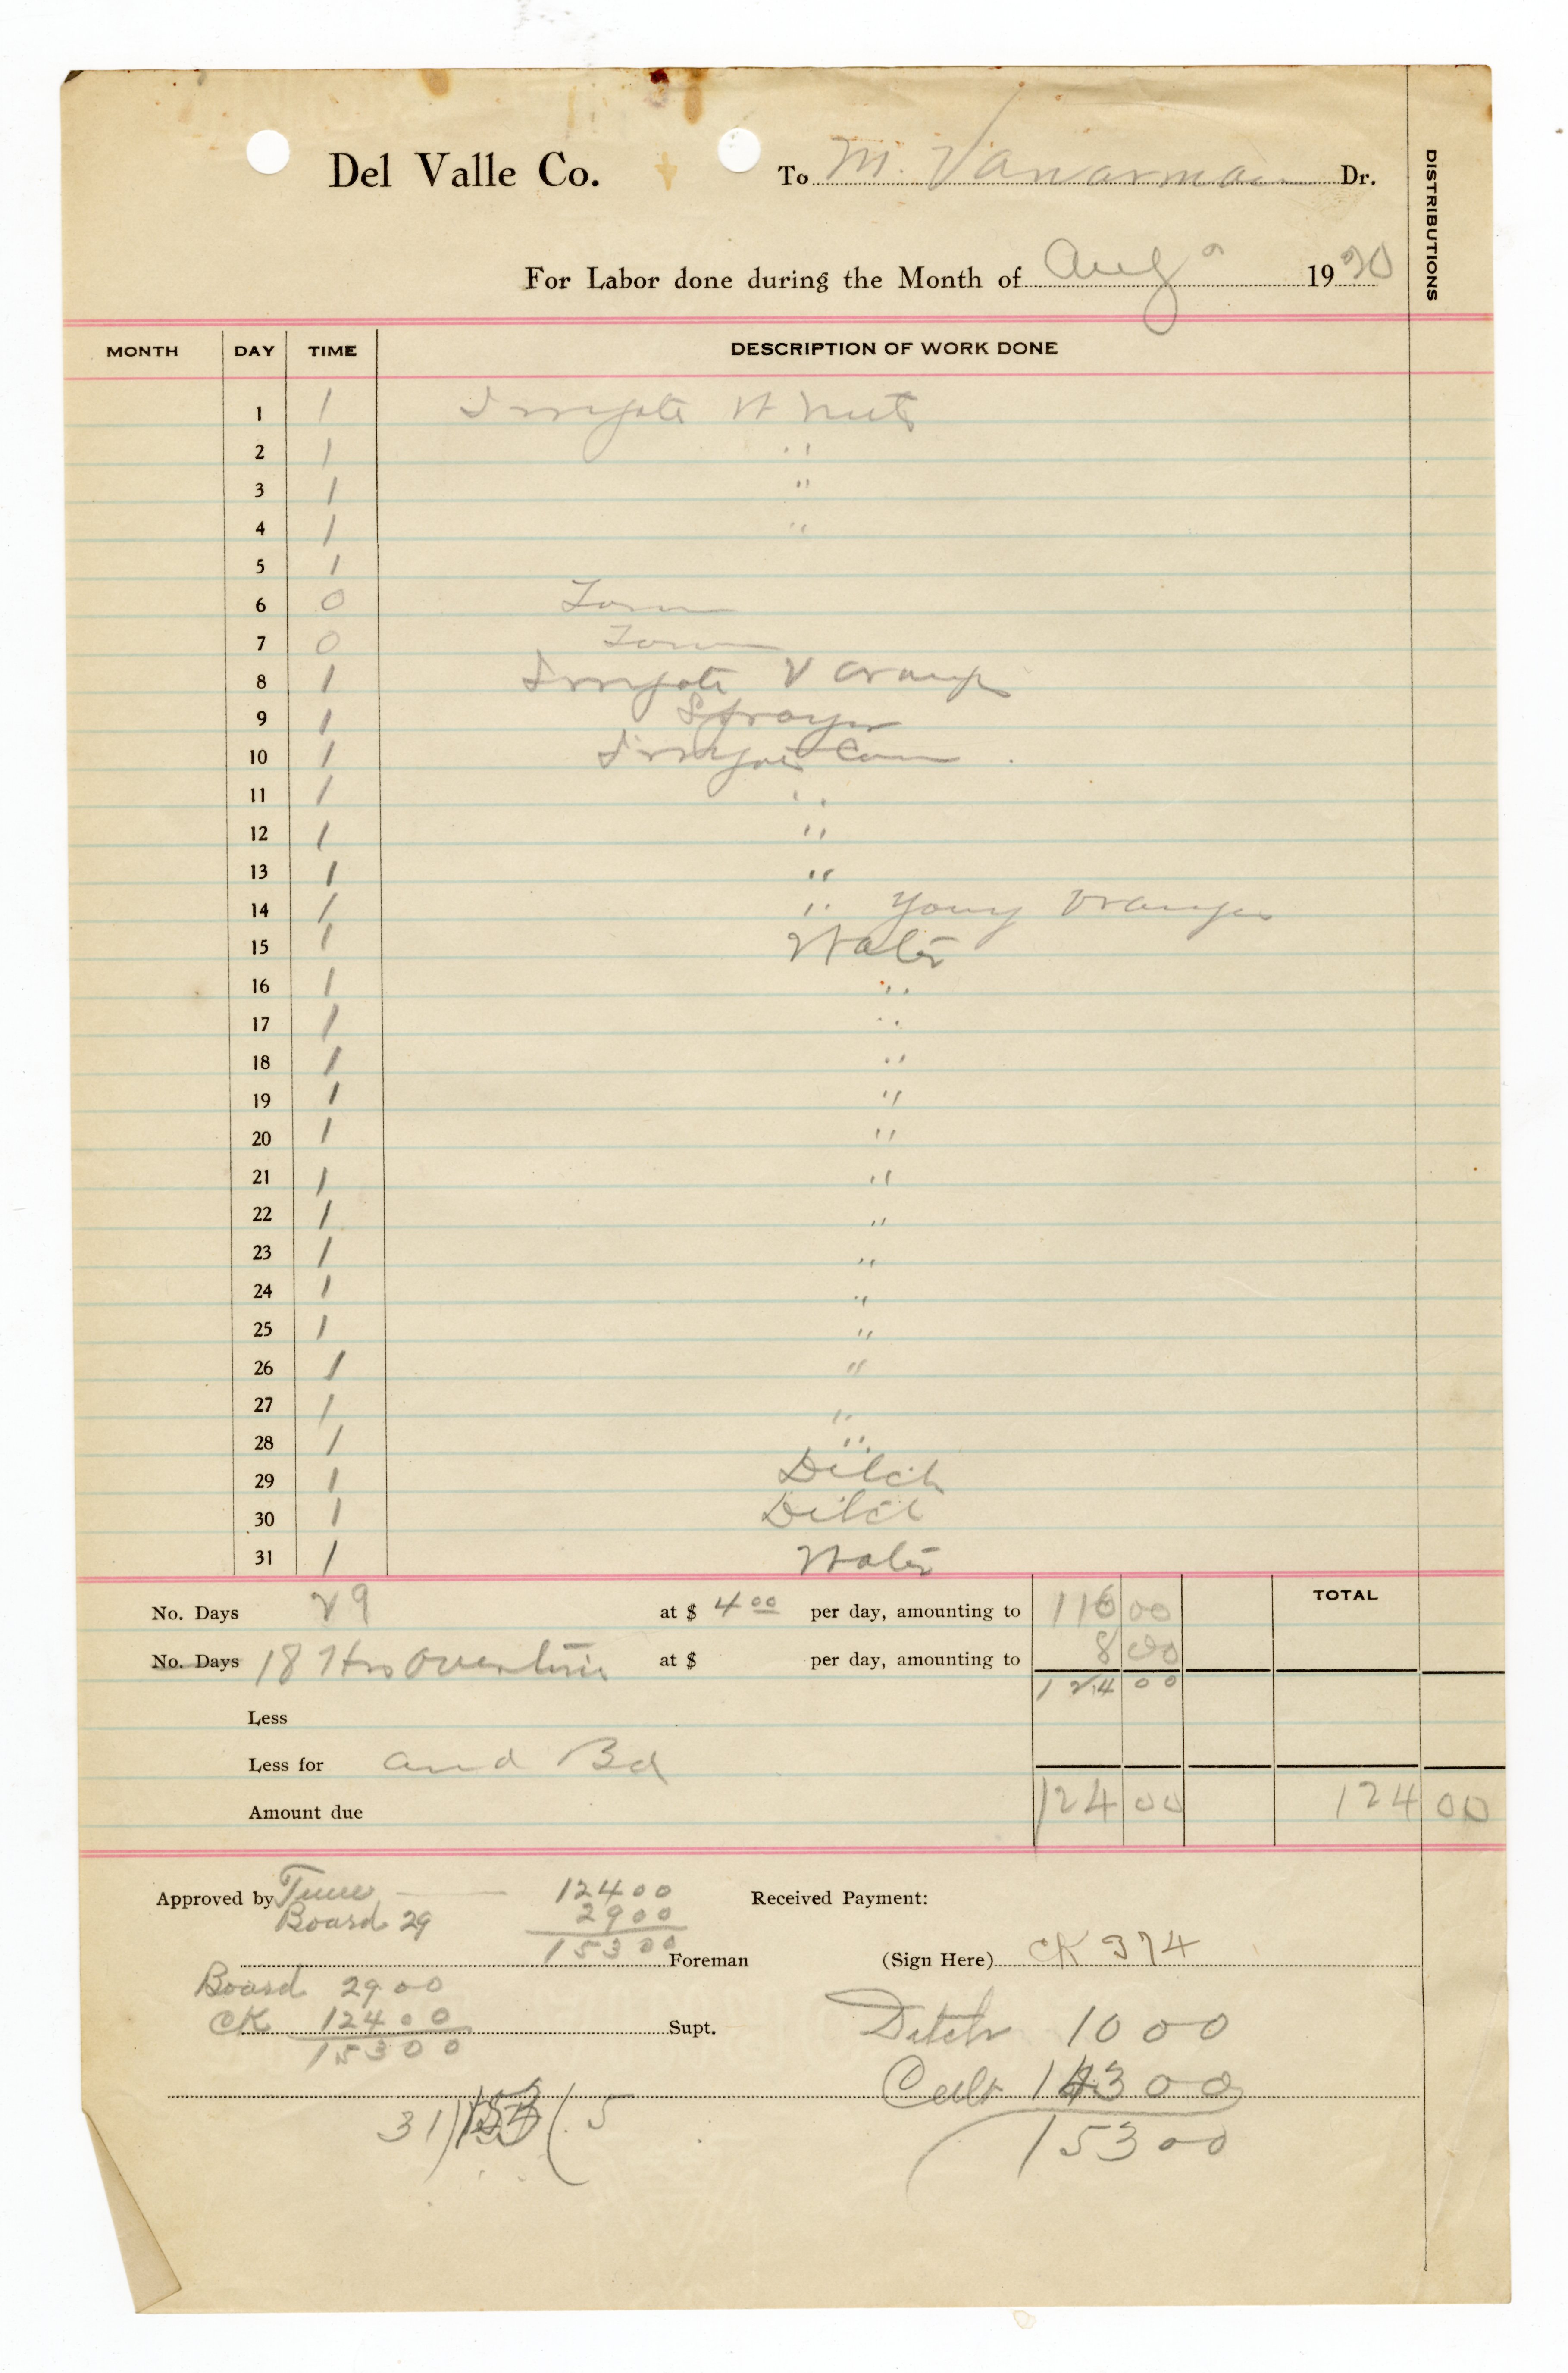 Del Valle Co. To M. Vanarman Dr.
DISTRIBUTIONS
For Labor done during the Month of Aug 1920
MONTH DAY TIME DESCRIPTION OF WORK DONE
1 1 Irrigate W Nuts
2 1 "
3 1 "
4 1 "
5 1
6 0 Town
7 0 Town
8 1 Irrigate V Orange
9 1 Sprayer
10 1 Irrigate Corn
11 1 "
12 1 "
13 1 "
14 1 " Young Oranges
15 1 Water
16 1 "
17 1 "
18 1 "
19 1 "
20 1 "
21 1 "
22 1 "
23 1 "
24 1 "
25 1 "
26 1 "
27 1 "
28 1 "
29 1 Ditch
30 1 Ditch
31 1 Water
TOTAL
No. Days 29 at $ 4 00 per day, amounting to 116 00
No. Days 18 Hrs Overtime at $ per day, amounting to 8 00
124 00
Less
Less for and Bd
Amount due 124 00 124 00
Approved by Time — 124 00 Received Payment:
Board 29 29 00
153 00 Foreman (Sign Here) CK 374
Board 29 00
CK 124 00 Supt. Ditch 10 00
153 00
Cult 143 00
31)153(5 153 00